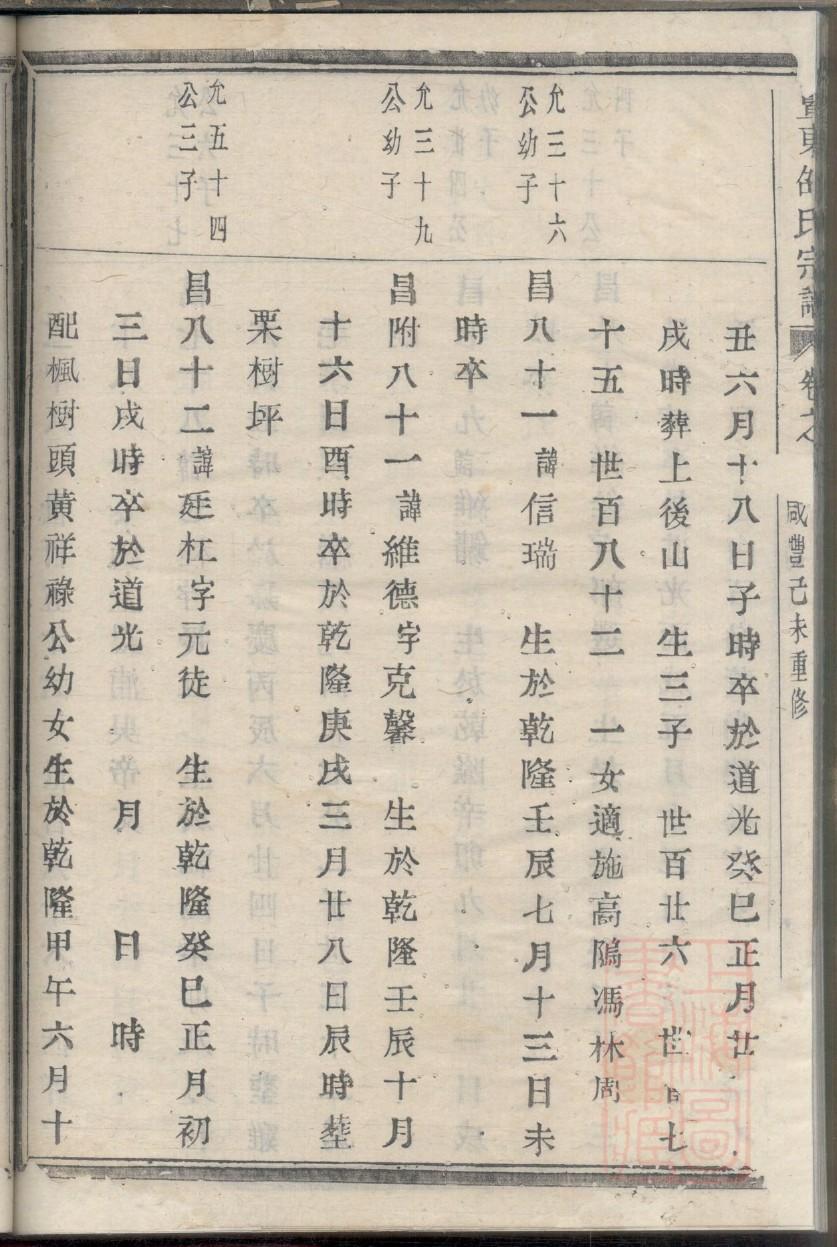 東 氏宗譜 卷之
咸豐己未重修
丑六月十八日子時卒於道光癸巳正月廿
戌時葬上後山 生三子 世百廿六 世百七
十五 世百八十二 一女適施高隝馮林周
允三十六
公幼子
昌八十一諱信瑞 生於乾隆壬辰七月十三日未
時卒
允三十九
公幼子
昌附八十一諱維德字克馨 生於乾隆壬辰十月
十六日酉時卒於乾隆庚戌三月廿八日辰時塟
栗樹坪
允五十四
公三子
昌八十二諱廷杠字元徒 生於乾隆癸巳正月初
三日戌時卒於道光 月 日 時
配楓樹頭黃祥祿公幼女生於乾隆甲午六月十